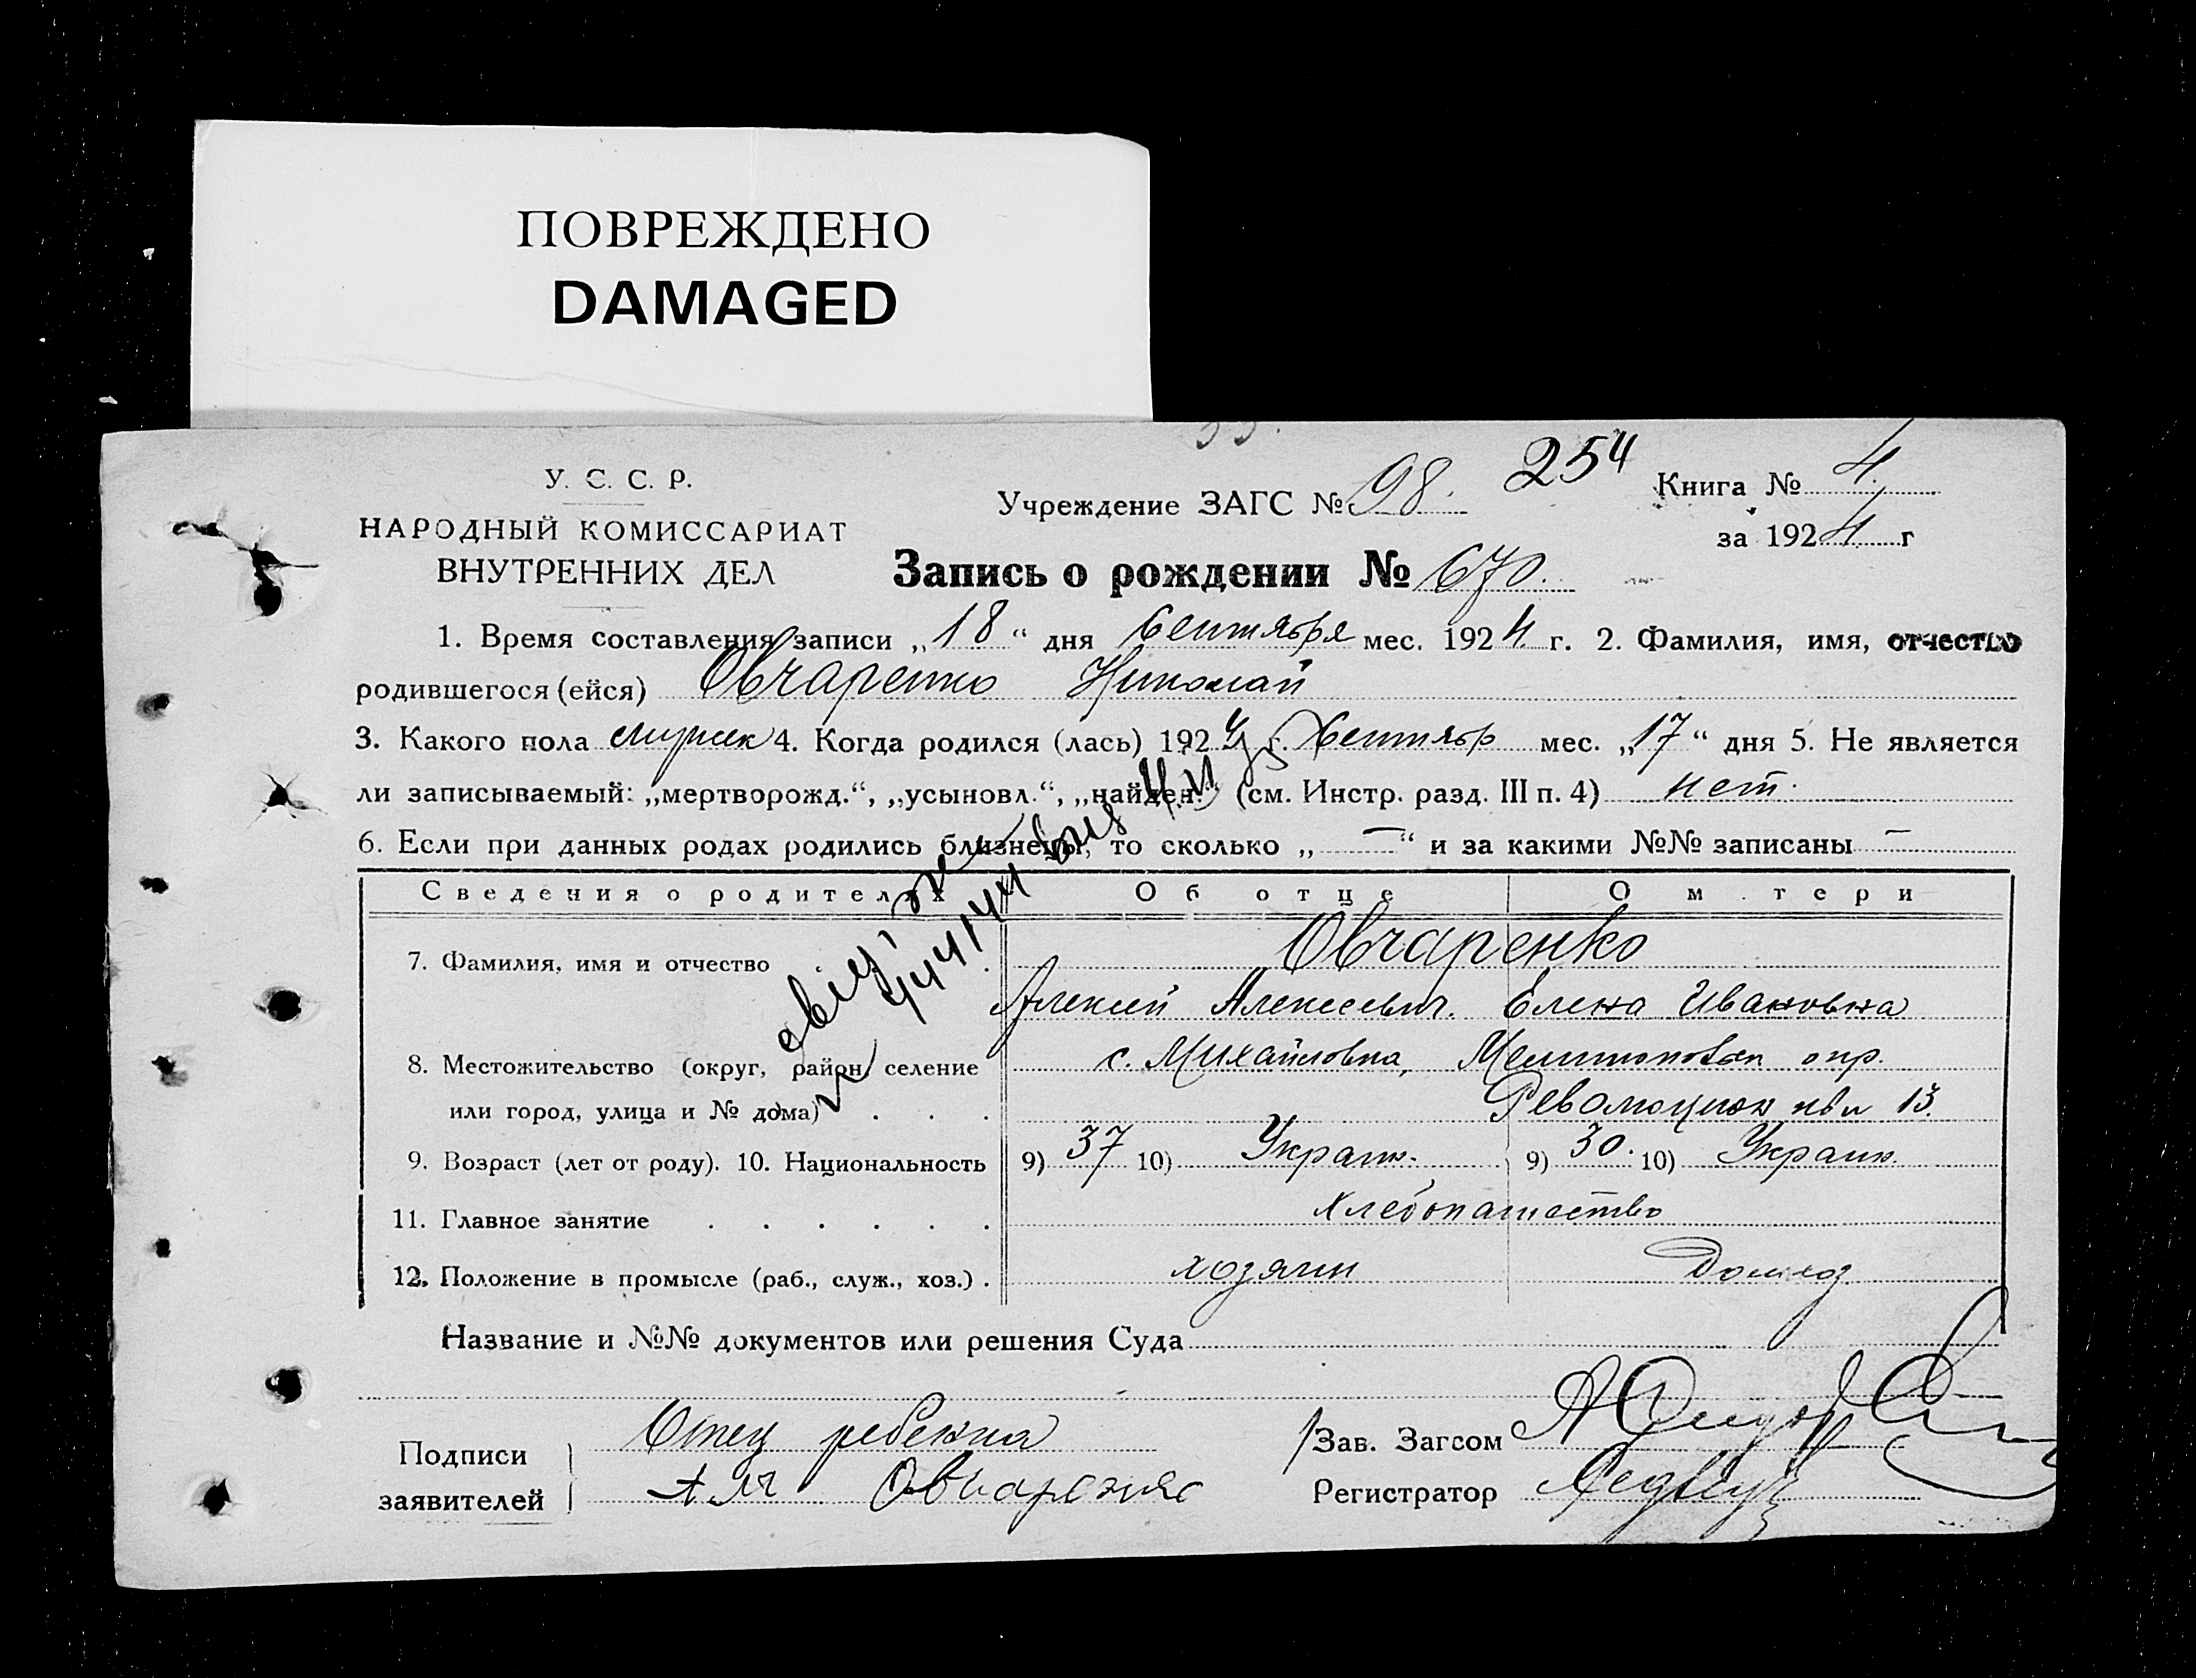 ПОВРЕЖДЕНО
DAMAGED
254
У. С. С. Р.
НАРОДНЫЙ КОМИССАРИАТ
ВНУТРЕННИХ ДЕЛ
Учреждение ЗАГС № 98.
Книга № 4.
за 1924 г
Запись о рождении № 670.
1. Время составления записи „18“ дня Сентября мес. 1924. г. 2. Фамилия, имя, отчество
родившегося (ейся) Овчаренко Николай
3. Какого пола мужск 4. Когда родился (лась) 1924 г. Сентябр мес. „17“ дня 5. Не является
ли записываемый: „мертворожд.“, „усыновл.“, „найден.“ (см. Инстр. разд. III п. 4) нет.
6. Если при данных родах родились близнецы, то сколько „—“ и за какими №№ записаны —
Сведения о родителях Об отце О м тери
7. Фамилия, имя и отчество Овчаренко
Алексей Алексеевич. Елена Ивановна
8. Местожительство (округ, район, селение с. Михайловка, Мелитоповск окр.
или город, улица и № дома) Революцион кв л 13.
9. Возраст (лет от роду). 10. Национальность 9) 37 10) Украин. 9) 30. 10) Украин.
11. Главное занятие Хлебопашество
12. Положение в промысле (раб., служ., хоз.) хозяин Домхоз
Название и №№ документов или решения Суда
Подписи заявителей
Отец ребенка
Овчаренко
Зав. Загсом
Регистратор